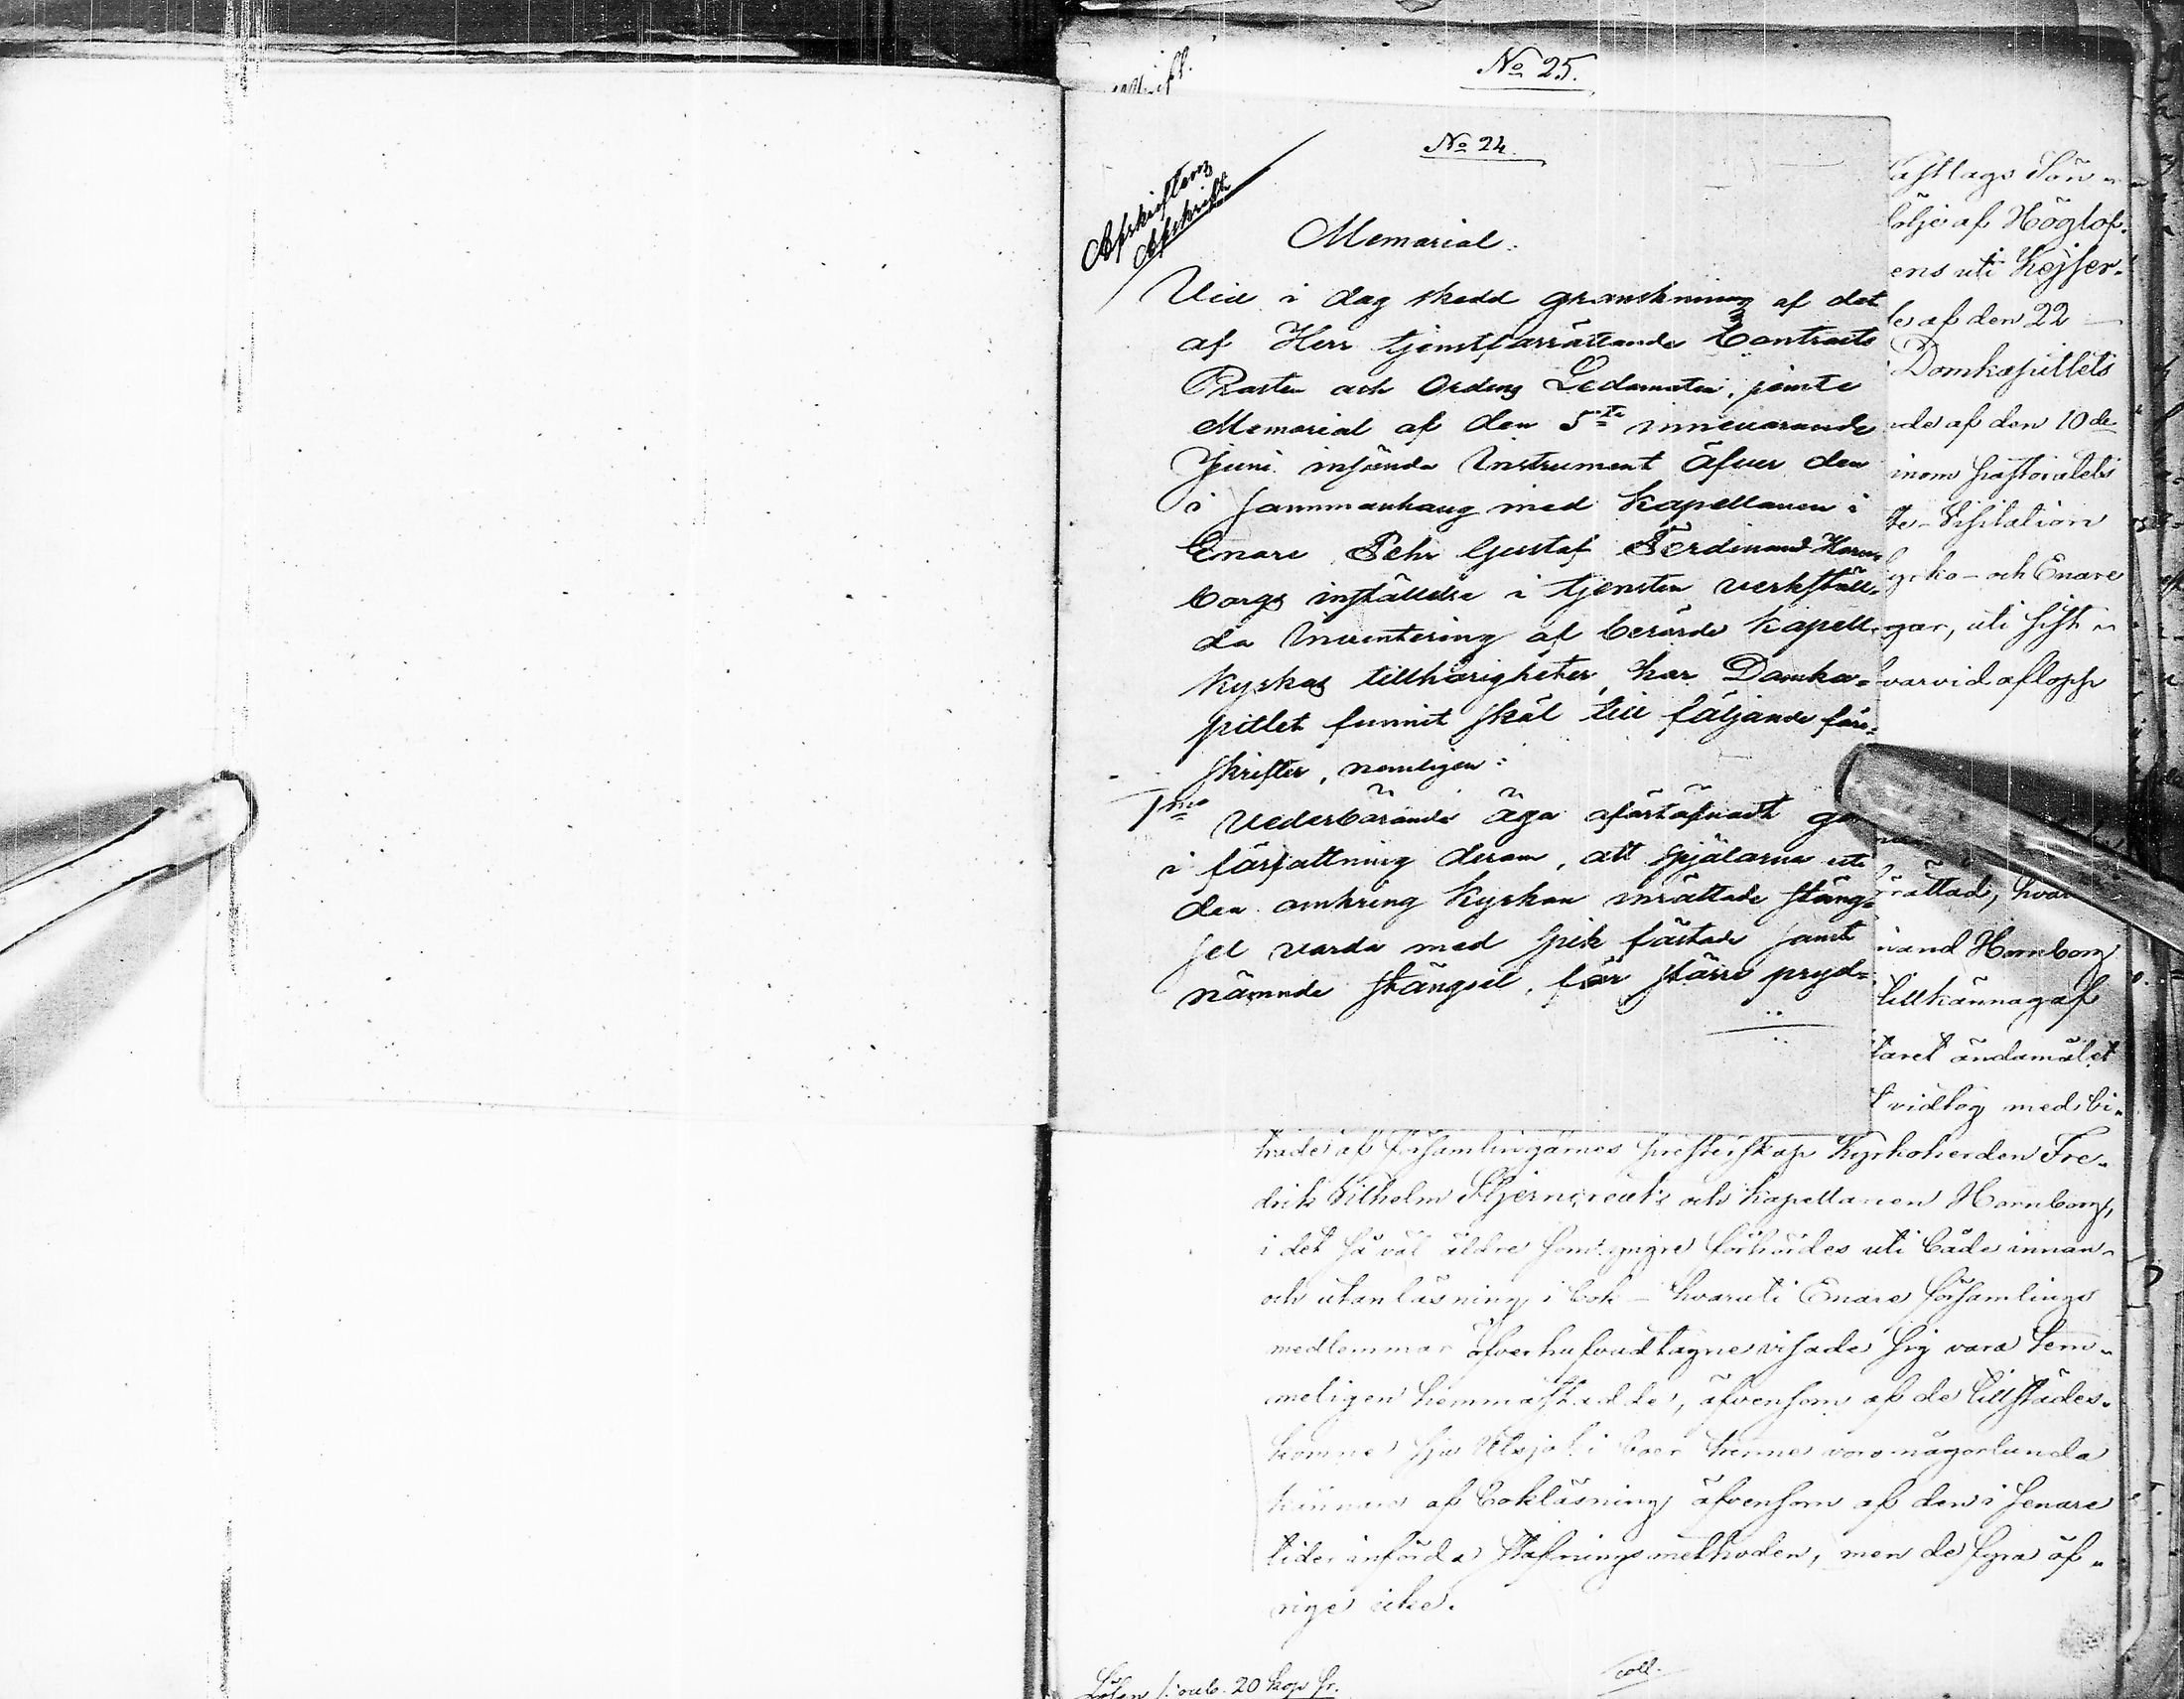 No 25.
No 24.
Afskriftens
Afskrift
Memorial.
Vid i dag skedd granskning af det
af Herr tjenstförrättande Contracts
Prosten och Ordens Ledamoten, jemte
Memorial af den 5te innevarande
Juni insände Instrument öfver den
i sammanhang med Kapellanen i
Enare Pehr Gustaf Ferdinand Horn-
borgs inställelse i tjensten verkstäl-
da Inventering af berörde Kapell-
kyrkas tillhörigheter, har Domka-
pitlet funnit skäl till följande före-
skrifter, nemligen:
1mo Vederbörande äga oförtöfvadt gå
i författning derom, att spjälarne uti
den omkring Kyrkan inrättade stäng-
sel varda med spik fästade samt
nämnde stängsel, för större pryd-
astlags Sön-
följe af Höglof.
ens uti Kejser-
le af den 22
Domkapitlets
nde af den 10de
inom pastoratets
te-Visitation
yrko- och Enare
gar, uti sist
varvid aflopp
rättad, hvar
nand Hornborg
tillkännagaf
taret ändamålet
t vidtog med bi-
träde af församlingarnes presterskap Kyrkoherden Fre-
drik Vilhelm Stjerncreutz och Kapellanen Hornborg,
i det så väl äldre som yngre förhördes uti både innan-
och utanläsning i bok - hvaruti Enare församlings
medlemmar öfverhufvudtagne visade sig vara tem-
meligen hemmastadde, äfvensom af de tillstädes-
komne sju Utsjoki boer trenne voro någorlunda
kunnare af bokläsning äfvensom af den i senare
tider införda stafningsmethoden, men de fyra öf-
rige icke.
Lösen 1 rub. 20 kop sr.
coll.